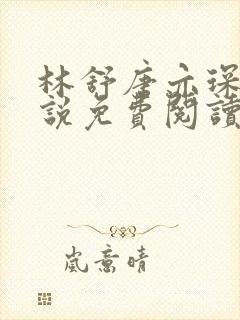 林舒唐亦琛
說免費閱讀
嵐意晴